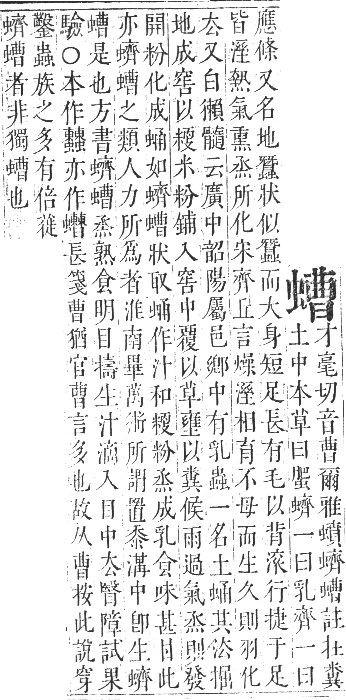 螬
才毫切音曹爾雅蟦蠐螬註在糞
土中本草曰蟹蠐一曰乳齊一曰
應條又名地蠶狀似蠶而大身短足長有毛以背滚行捷于足
皆溼熱氣熏烝所化宋齊丘言燥溼相育不母而生久則羽化
厺又白獺髓云廣中韶陽屬邑鄉中有乳蟲一名土蛹其法掘
地成窖以粳米粉鋪入窖中覆以草壅以糞候雨過氣烝則發
開粉化成蛹如蠐螬狀取蛹作汁和粳粉烝成乳食味甚甘此
亦蠐螬之類人力所爲者淮南畢萬術所謂置黍溝中卽生蠐
螬是也方書蠐螬烝熟食明目擣生汁滴入目中厺瞖障試果
驗○本作亦作長箋曹猶官曹言多也故从曹按此說穿
鑿蟲族之多有倍蓰
蠐螬者非獨螬也